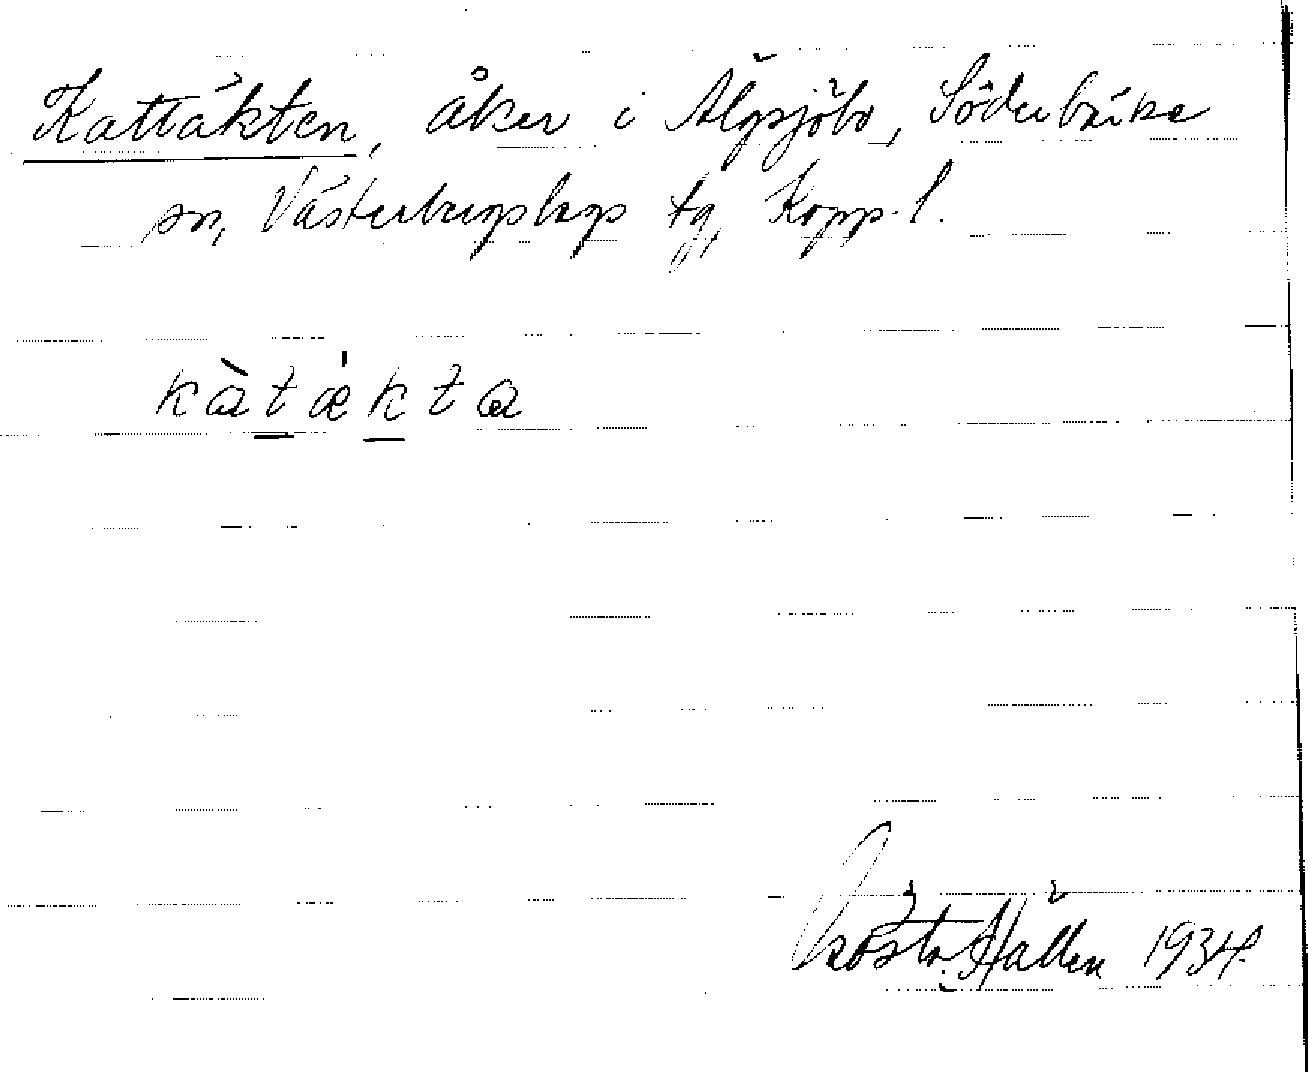 Kattäkten, åker i Älgsjöbo, Söderbärke
sn, Västerbergslags tg, Kopp. l.
kàt̠ǽk̠ta
Gösta Hällen 1934.